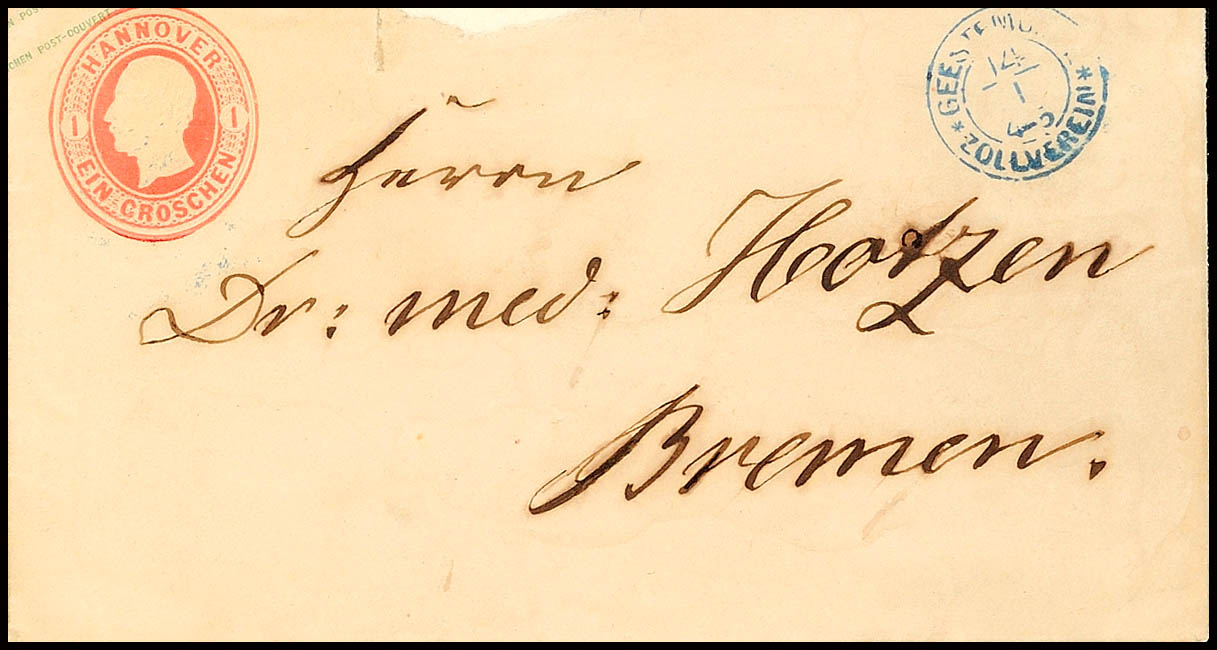 EN POS
CHEN POST-COUVERT
HANNOVER
1 1
EIN GROSCHEN
14/1
4-5
*ZOLLVEREIN*
Herrn
Dr: med: Hotzen
Bremen.